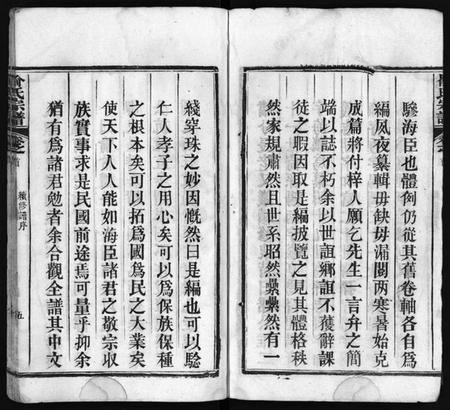 驂海臣也體例仍從其舊卷軸各自爲
編夙夜纂輯毋缺毋漏閱兩寒暑始克
成篇將付梓人願乞先生一言弁之簡
端以誌不朽余以世誼鄉誼不獲辭課
徒之暇因取是編披覽之見其體格秩
然家規肅然且世系昭然纍纍然有一
綫穿珠之妙因慨然曰是編也可以驗
仁人孝子之用心矣可以爲保族保種
之根本矣可以拓爲國爲民之大業矣
使天下人人能如海臣諸君之敬宗收
族實事求是民國前途焉可量乎抑余
猶有爲諸君勉者余合觀全譜其中文
氏宗譜
卷之首
續修譜序
五